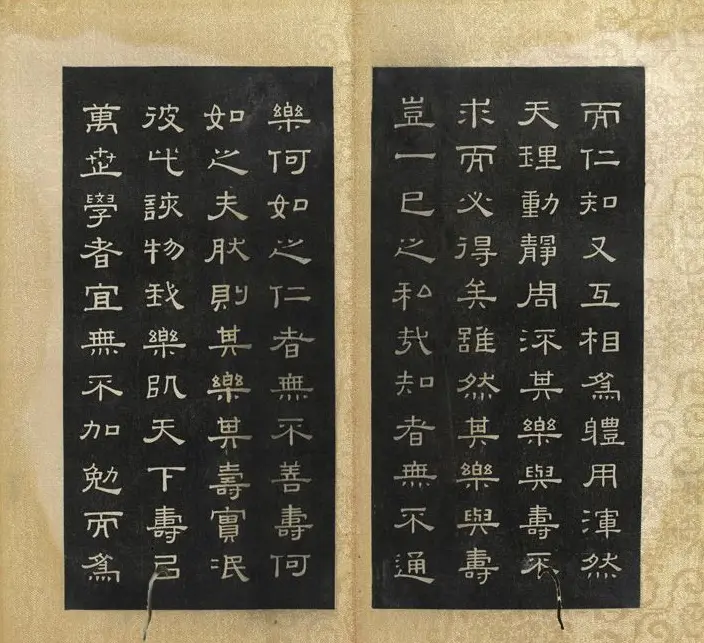 而仁知又互相為體用渾然
天理動靜周流其樂與壽不
求而必得矣雖然其樂與壽
豈一己之私哉知者無不通
樂何如之仁者無不善壽何
如之夫肰則其樂其壽實泯
彼此該物我樂即天下壽㠯
萬世學者宜無不加勉而為